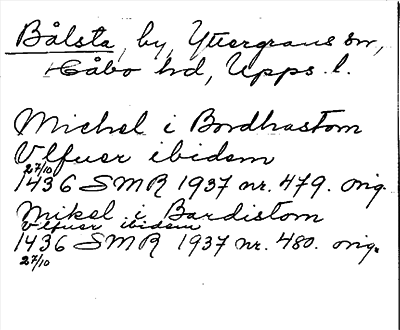 Bålsta, by, Yttergrans sn,
Håbo hd, Upps. l.
Michel i Bordhastom
Vlfuer ibidem
27/10
1436 SMR 1937 nr. 479. orig.
Mikel i Bardistom
Vlfuer ibidem
1436 SMR 1937 nr. 480. orig.
27/10